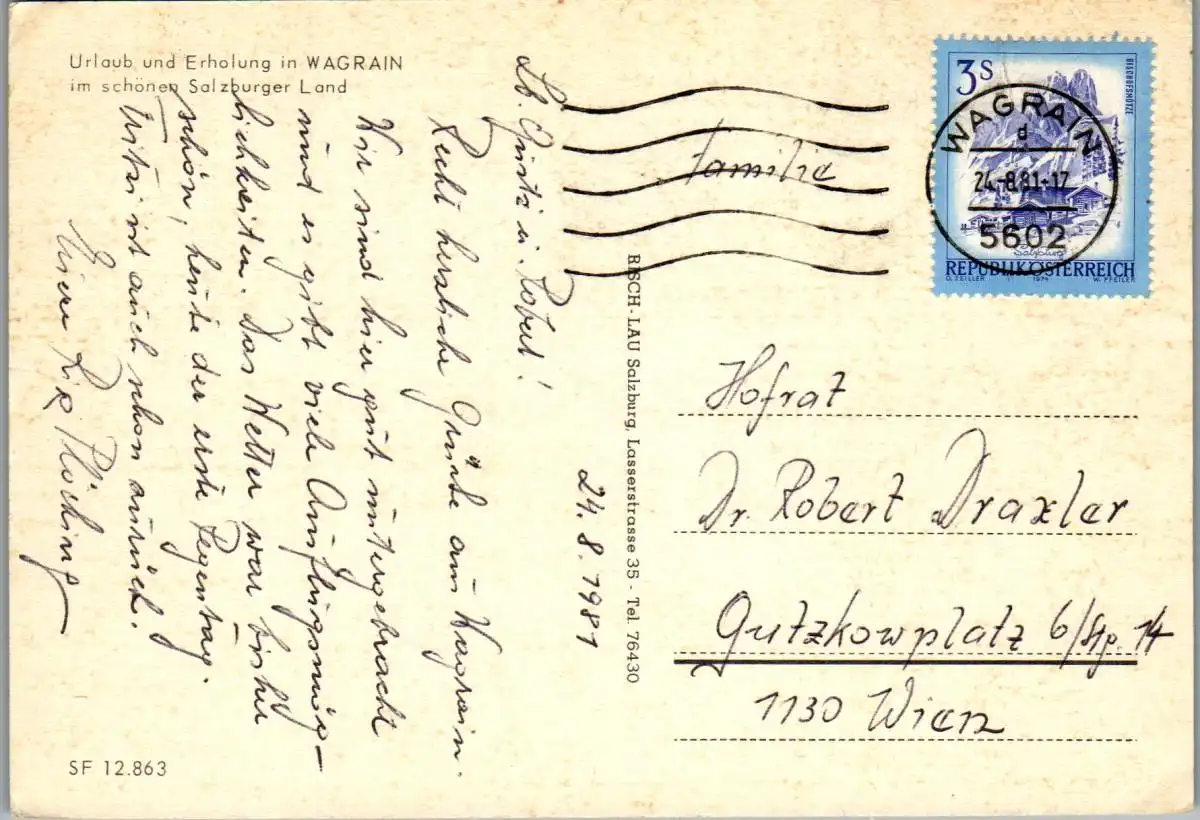 Urlaub und Erholung in WAGRAIN
im schönen Salzburger Land
Lb. Gusta u. Robert!
Recht herzliche Grüße aus Wagrain.
Wir sind hier gut untergebracht
und es gibt viele Ausflugsmög-
lichkeiten. Das Wetter war bisher
schön, heute der erste Regentag.
Mitzi ist auch schon zurück.
24.8.1981
RISCH-LAU Salzburg, Lasserstrasse 35 - Tel. 76430
SF 12.863
3 S
BISCHOFSMÜTZE
Salzburg
REPUBLIK ÖSTERREICH
O. ZEILLER 1974 W. PFEILER
WAGRAIN
d
24.-8.81-17
5602
Familie
Hofrat
Dr. Robert Draxler
Gutzkowplatz 6/Stg. 14
1130 Wien